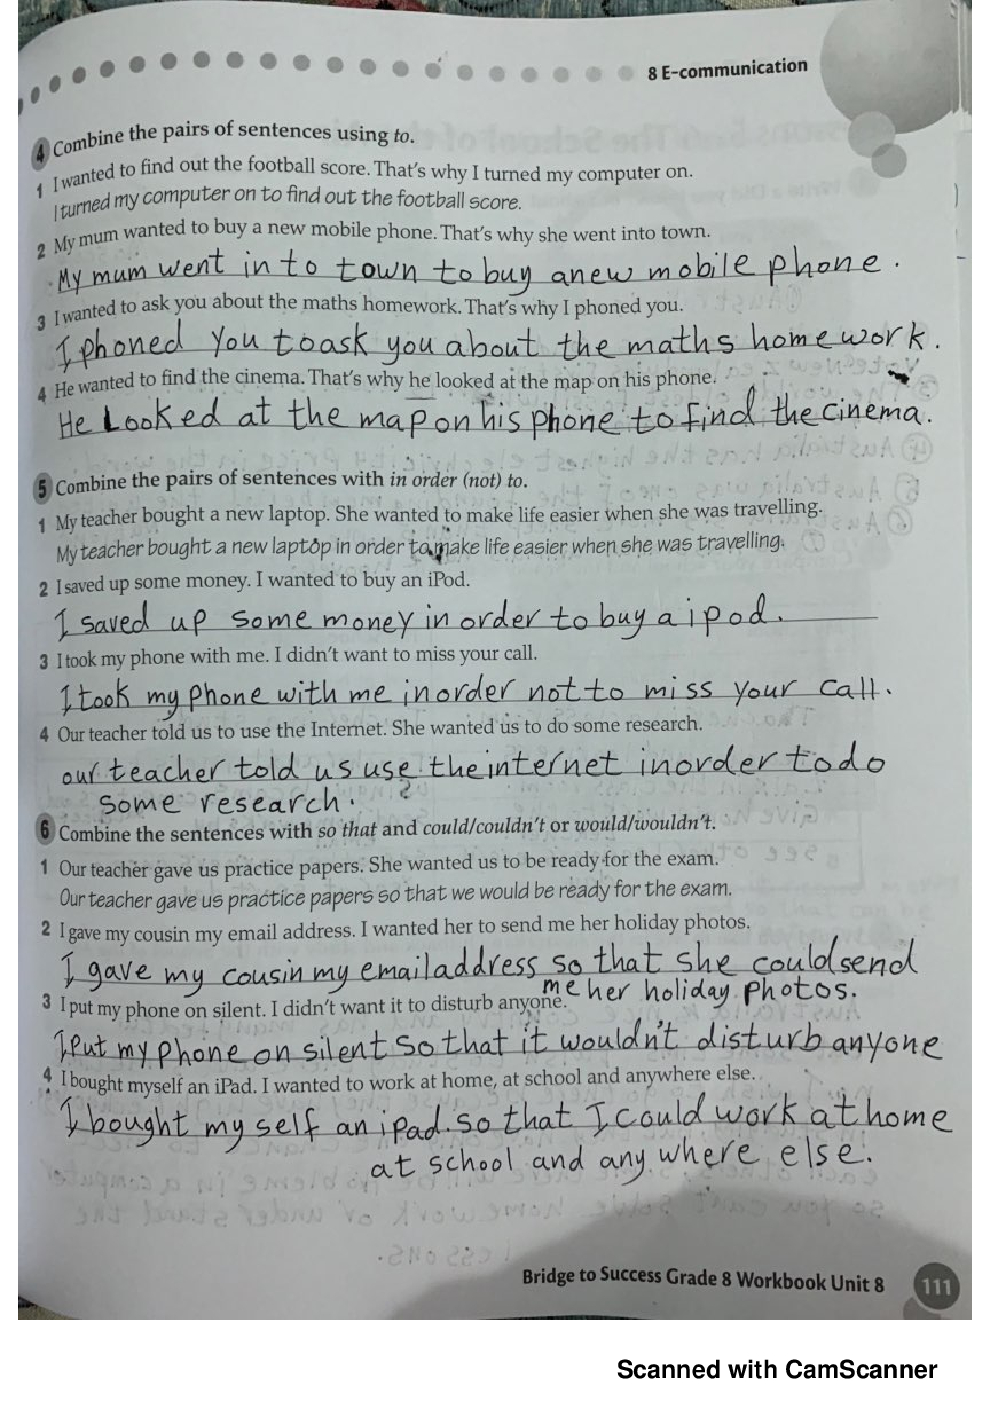 8 E-communication
4 Combine the pairs of sentences using to.
1 I wanted to find out the football score. That's why I turned my computer on.
I turned my computer on to find out the football score.
2 My mum wanted to buy a new mobile phone. That's why she went into town.
My mum went in to town to buy anew mobile phone.
3 I wanted to ask you about the maths homework. That's why I phoned you.
I phoned you to ask you about the maths home work.
4 He wanted to find the cinema. That's why he looked at the map on his phone.
He Looked at the map on his phone to find the cinema.
5 Combine the pairs of sentences with in order (not) to.
1 My teacher bought a new laptop. She wanted to make life easier when she was travelling.
My teacher bought a new laptop in order to make life easier when she was travelling.
2 I saved up some money. I wanted to buy an iPod.
I saved up some money in order to buy a ipod.
3 I took my phone with me. I didn't want to miss your call.
I took my phone with me in order not to miss your call.
4 Our teacher told us to use the Internet. She wanted us to do some research.
our teacher told us use the internet in order to do
some research.
6 Combine the sentences with so that and could/couldn't or would/wouldn't.
1 Our teacher gave us practice papers. She wanted us to be ready for the exam.
Our teacher gave us practice papers so that we would be ready for the exam.
2 I gave my cousin my email address. I wanted her to send me her holiday photos.
I gave my cousin my email address so that she could send
me her holiday photos.
3 I put my phone on silent. I didn't want it to disturb anyone.
I Put my phone on silent so that it wouldn't disturb anyone
4 I bought myself an iPad. I wanted to work at home, at school and anywhere else.
I bought my self an ipad. so that I could work at home
at school and any where else.
Bridge to Success Grade 8 Workbook Unit 8 111
Scanned with CamScanner